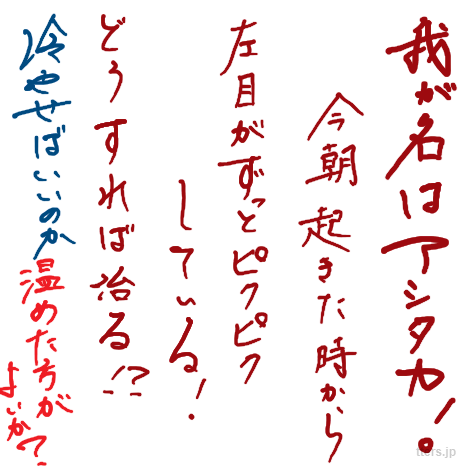 我が名はアシタカ!
今朝起きた時から
左目がずっとピクピク
している!
どうすれば治る!?
冷やせばいいのか
温めた方が
よいか?